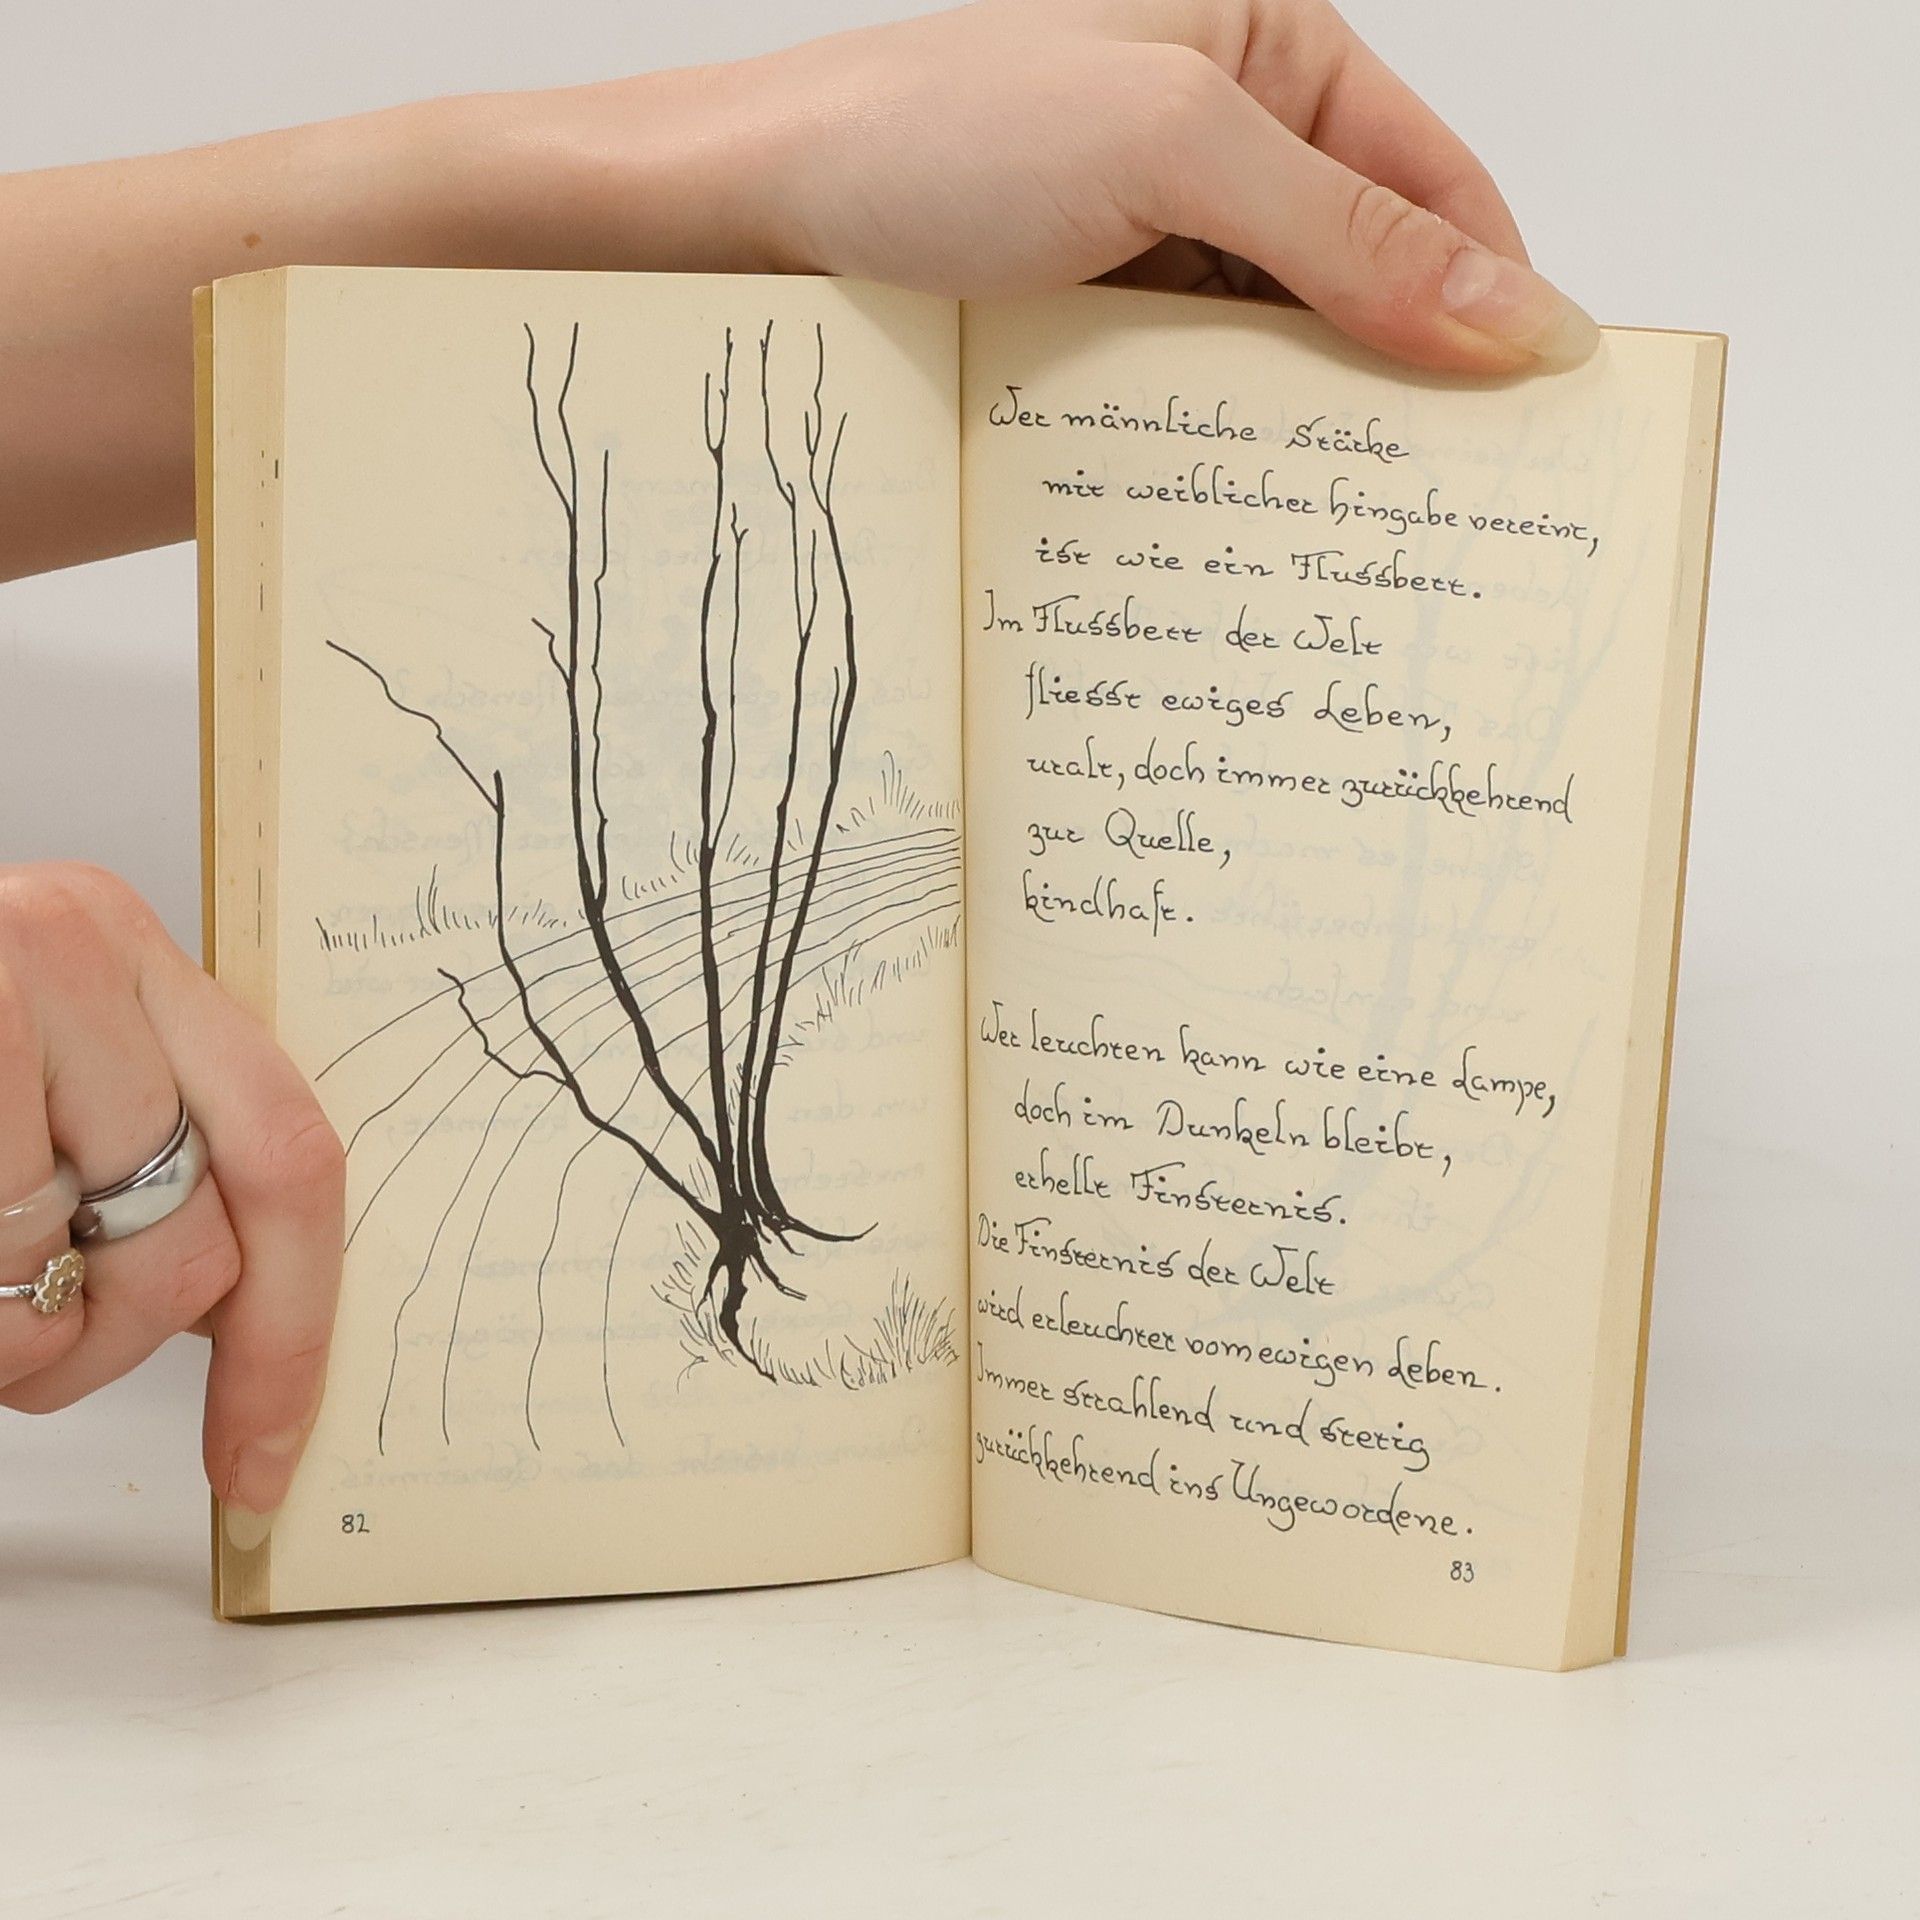 82
Wer männliche Stärke
mit weiblicher Hingabe vereint,
ist wie ein Flussbett.
Im Flussbett der Welt
fliesst ewiges Leben,
uralt, doch immer zurückkehrend
zur Quelle,
kindhaft.
Wer leuchten kann wie eine Lampe,
doch im Dunkeln bleibt,
erhellt Finsternis.
Die Finsternis der Welt
wird erleuchtet vom ewigen Leben.
Immer strahlend und stetig
zurückkehrend ins Ungewordene.
83